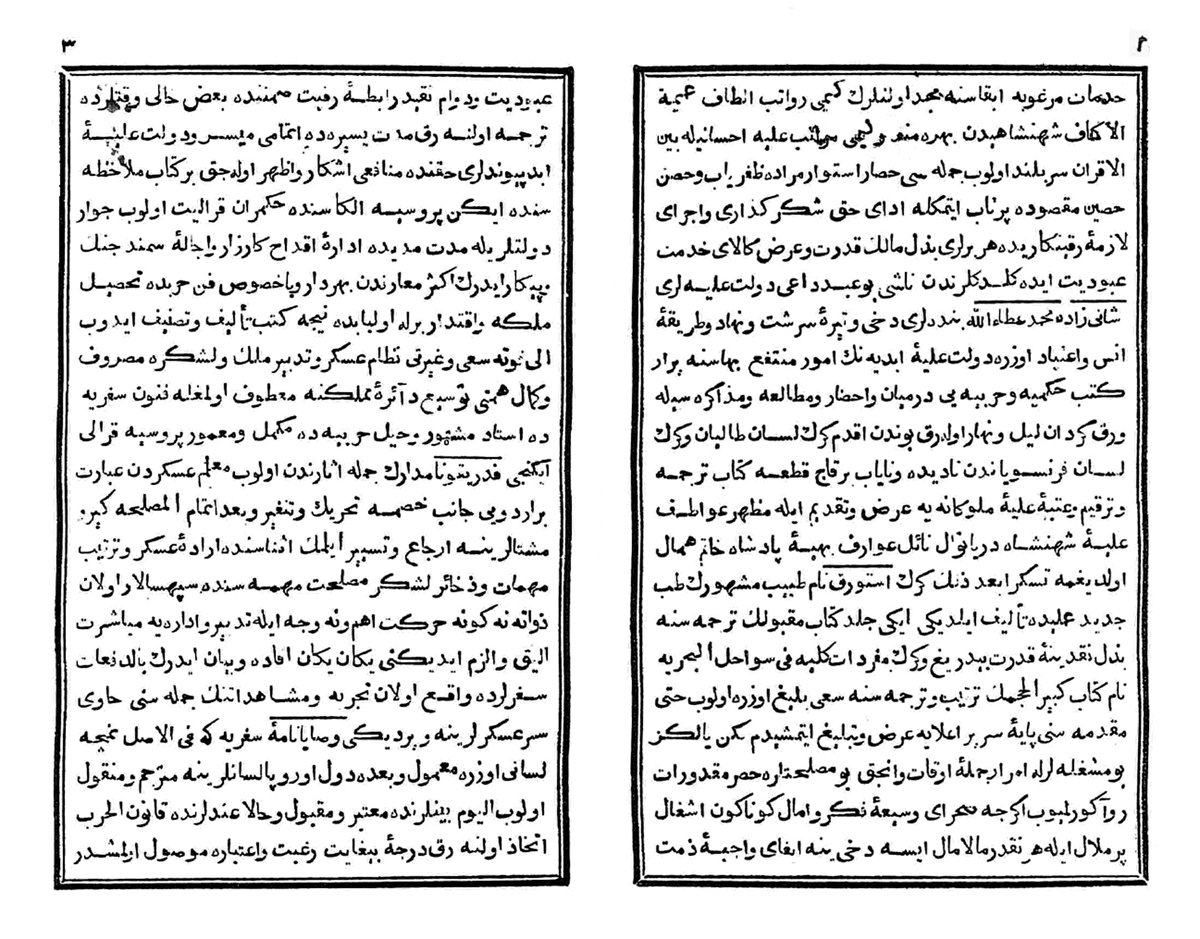 ٢
خدمات مرغوبه ابقاسنه مجد اولنلرك كیمی رواتب الطاف عمیمة
الاكناف شهنشاهیدن بهره مند و كیمی مراتب علیه احسانیله بین
الاقران سربلند اولوب جمله سی حصار استوار مراده ظفریاب وحصن
حصین مقصوده پرتاب ایتمكله ادای حق شكر كذاری واجرای
لازمهٔ رقیتكاریده هر بر لری بذل مالك قدرت وعرض كالای خدمت
عبودیت ایده كلدكلرندن ناشی بوعبد داعی دولت علیه لری
شانی زاده محمد عطاء الله بنده لری دخی وتیرهٔ سرشت ونهاد وطریقهٔ
انس واعتیاد اوزره دولت علیهٔ ابدیه نك امور منتفع بهاسنه یرار
كتب حكمیه وحربیه یی درمیان واحضار ومطالعه ومذاكره سیله
ورق كردان لیل ونهار اوله رق بوندن اقدم كرك لسان طالیان وكرك
لسان فرنسویاندن نادیده ونایاب برقاچ قطعه كتاب ترجمه
وترقیم وعتبهٔ علیهٔ ملوكانه یه عرض وتقدیم ایله مظهر عواطف
علیهٔ شهنشاه دریانوال نائل عوارف بهیهٔ پادشاه خاتم همال
اولدیغمه تشكرا بعد ذلك كرك استورق نام طبیب مشهورك طب
جدید علمیده تألیف ایلدیكی ایكی جلد كتاب مقبولك ترجمه سنه
بذل نقدینهٔ قدرت بیدریغ وكرك مفردات كلیه فی سواحل البحریه
نام كتاب كبیر الحجمك ترتیب وترجمه سنه سعی بلیغ اوزره اولوب حتی
مقدمه سنی پایهٔ سریر اعلایه عرض وتبلیغ ایتمشیدم لكن یالكز
بو مشغله لرله امرار جملهٔ اوقات وانجق بو مصلحتلره حصر مقدورات
روا كورلمیوب اكرچه صحرای وسیعهٔ فكر وامال كوناكون اشغال
پر ملال ایله هر نقدر مالامال ایسه دخی ینه ایفای واجبهٔ ذمت
٣
عبودیت ودوام تقید رابطهٔ رقیت ضمننده بعض خالی وقتلرده
ترجمه اولنه رق مدت یسیره ده اتمامی میسر ودولت علیهٔ
ابد پیوندلری حقنده منافعی اشكار واظهر اوله جق بر كتاب ملاحظه
سنده ایكن پروسیه الكاسنده حكمران قرالیت اولوب جوار
دولتلریله مدت مدیده ادارهٔ اقداح كارزار واجالهٔ سمند جنك
وپیكار ایدرك اكثر معارفدن بهره دار وباخصوص فن حربده تحصیل
ملكه واقتدار برله اولبابده نیجه كتب تألیف وتصنیف ایدوب
الی فوته سعی وغیرتی نظام عسكر وتدبیر ملك ولشكره مصروف
وكمال همتی توسیع دآئرهٔ مملكتنه معطوف اولمغله فنون سفریه
ده استاد مشهور وحیل حربیه ده مكمل ومعمور پروسیه قرالی
ایكنجی فدریقو نامدارك جمله اثارندن اولوب معلم عسكردن عبارت
بر اردویی جانب خصمه تحریك وتنفیر وبعد اتمام المصلحه كیرو
مشتالرینه ارجاع وتسییر ایلمك اثناسنده ارادهٔ عسكر وترتیب
مهمات وذخائر لشكر مصلحت مهمه سنده سپهسالار اولان
ذواته نه كونه حركت اهم ونه وجه ایله تدبیر واداره یه مباشرت
الیق والزم ایدیكنی یكان یكان افاده وبیان ایدرك بالدفعات
سفرلرده واقع اولان تجربه ومشاهداتنك جمله سنی حاوی
سرعسكرلرینه ویردیكی وصایانامهٔ سفریه كه فی الاصل نمچه
لسانی اوزره معمول وبعده دول اوروپا لسانلرینه مترجم ومنقول
اولوب الیوم بینلرنده معتبر ومقبول وحالا عندلرنده قانون الحرب
اتخاذ اولنه رق درجهٔ بیغایت رغبت واعتباره موصول اولمشدر